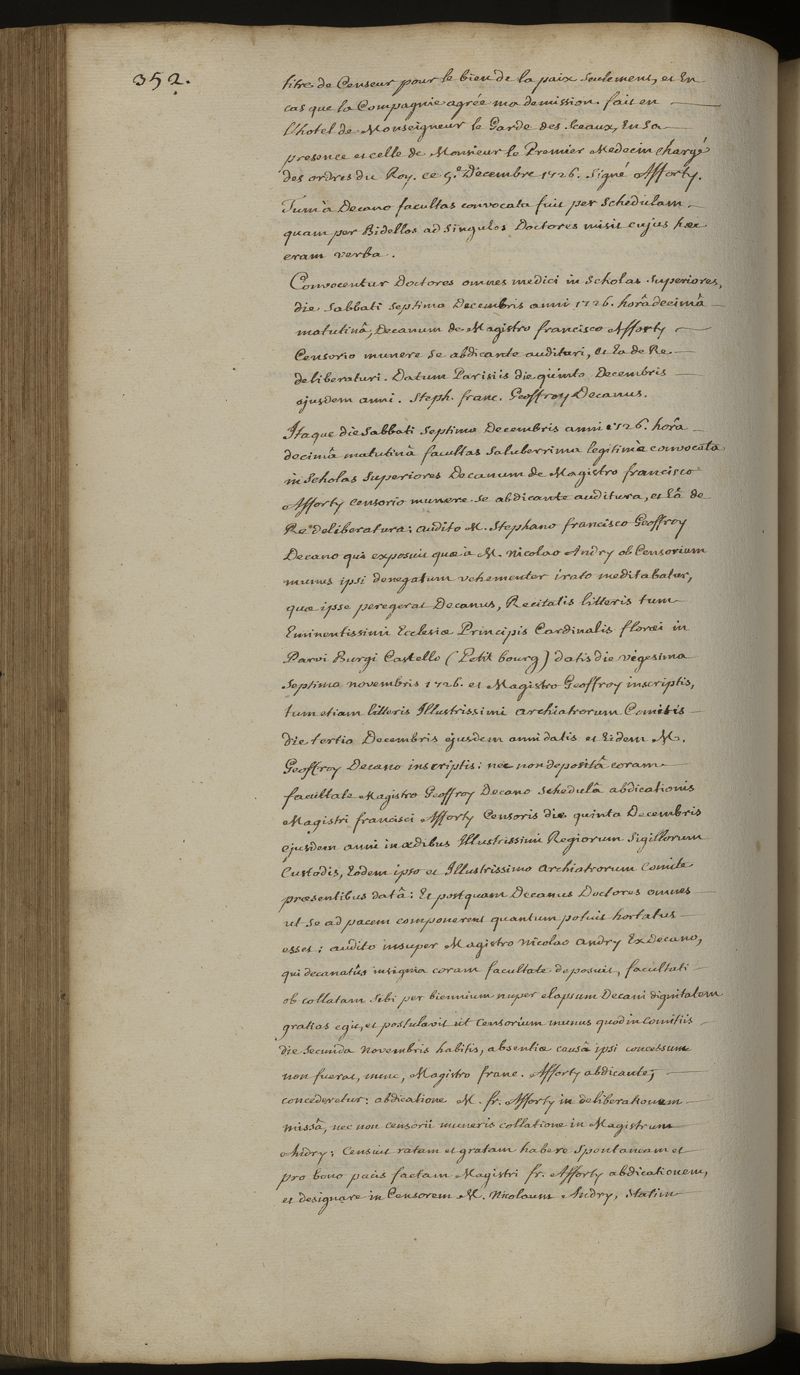 352.
titre de Censeur pour le bien de la paix seulement, et En
cas que la Compagnie agrée ma demission. fait en
L'hotel de Monseigneur le Garde des Sceaux, En Sa
presence et celle de Monsieur le Premier Medecin chargé
des ordres du Roy. ce 5.e Decembre 1726. Signé Afforty.
Tum à Decano facultas convocata fuit per Schedulam
quam per Bidellos ad Singulos Doctores misit cujus hæc
erant verba.
Convocentur Doctores omnes medici in Scholas Superiores,
die Sabbati Septima Decembris anni 1726. horâ decimâ
matutinâ, Decanum de Magistro francisco Afforty
Censorio munere Se abdicante audituri, et Ea de Re
deliberaturi. Datum Parisiis die quinto Decembris
ejusdem anni. Steph. franc. Geoffroy Decanus.
Itaque die Sabbati Septima Decembris anni 1726. horâ
decimâ matutinâ facultas Saluberrima legitimè convocata
in Scholas Superiores Decanum de Magistro francisco
Afforty Censorio munere Se abdicante auditura, et Eâ de
Re deliberatura: audito M. Stephano francisco Geoffroy
Decano qui exposuit quæ à M. Nicolao Andry ob Censorium
munus ipsi denegatum vehementer irato meditabatur,
quæ ipse peregerat Decanus, Recitatis litteris tum
Eminentissimi Ecclesiæ Principis Cardinalis floræi in
Parvi Burgi Castello (Petit bourg) datis die vigesima
Septima novembris 1726. et Magistro Geoffroy inscriptis,
tum etiam litteris Illustrissimi archiatrorum Comitis
die tertia Decembris ejusdem anni datis et Eidem M.
Geoffroy Decano inscriptis: nec non depositâ coram
facultate Magistro Geoffroy Decano Schedulâ abdicationis
Magistri francisci Afforty Censoris die quinta Decembris
ejusdem anni in ædibus Illustrissimi Regiorum Sigillorum
Custodis, Eodem ipso et Illustrissimo archiatrorum Comite
præsentibus datâ: Et postquam Decanus Doctores omnes
ut Se ad pacem componerent quantum potuit hortatus
esset; audito insuper Magistro Nicolao Andry ExDecano,
qui decanatûs insignia coram facultate deposuit, facultati
ob collatam Sibi per biennium nuper elapsum Decani dignitatem
gratias egit, et postulavit ut Censorium munus quod in Comitiis
die Secunda Novembris habitis, absentiæ causâ ipsi concessum
non fuerat, nunc, Magistro franc. Afforty abdicante,
concederetur: abdicatione M. fr. Afforty in deliberationem
missâ, nec non censorii muneris collatione in Magistrum
Andry; Censuit ratam et gratam habere Spontaneam et
pro bono pacis factam Magistri fr. Afforty abdicationem,
et designare in Censorem M. Nicolaum Andry, Statim